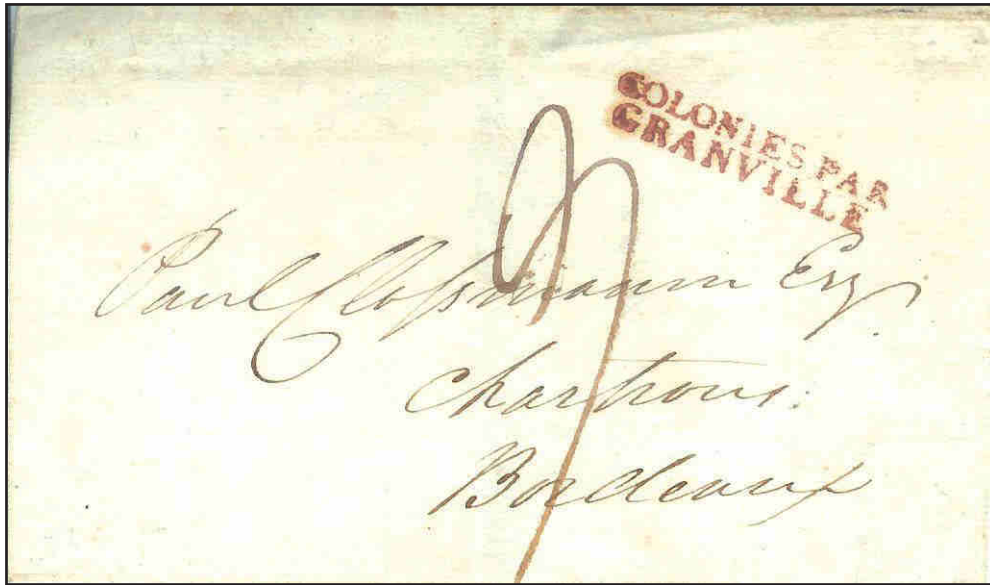 COLONIES PAR
GRANVILLE
Paul Clossmann Esq
Chartrons.
Bordeaux